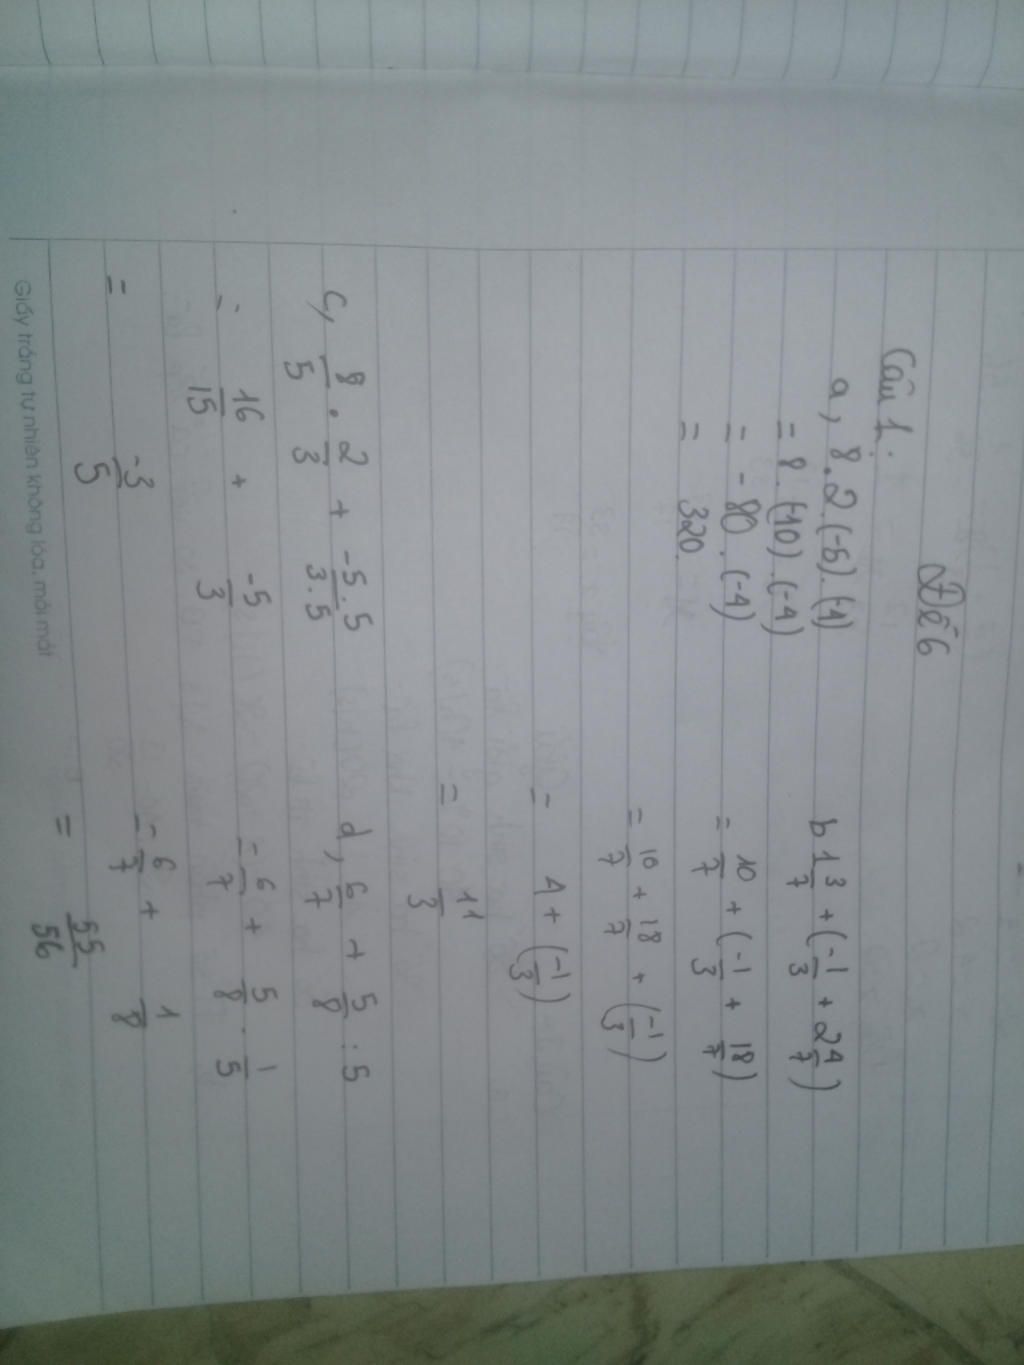 Đề 6
Câu 1.
a, 8.2.(-5).(-4)
= 8.(-10).(-4)
= -80.(-4)
= 320
b 1 3/7 + (-1/3 + 2 4/7)
= 10/7 + (-1/3 + 18/7)
= 10/7 + 18/7 + (-1/3)
= 4 + (-1/3)
= 11/3
c, 8/5 . 2/3 + -5.5/3.5
= 16/15 + -5/3
= -3/5
d, 6/7 + 5/8 : 5
= 6/7 + 5/8 . 1/5
= 6/7 + 1/8
= 55/56
Giấy trắng tự nhiên không lóa, mỏi mắt